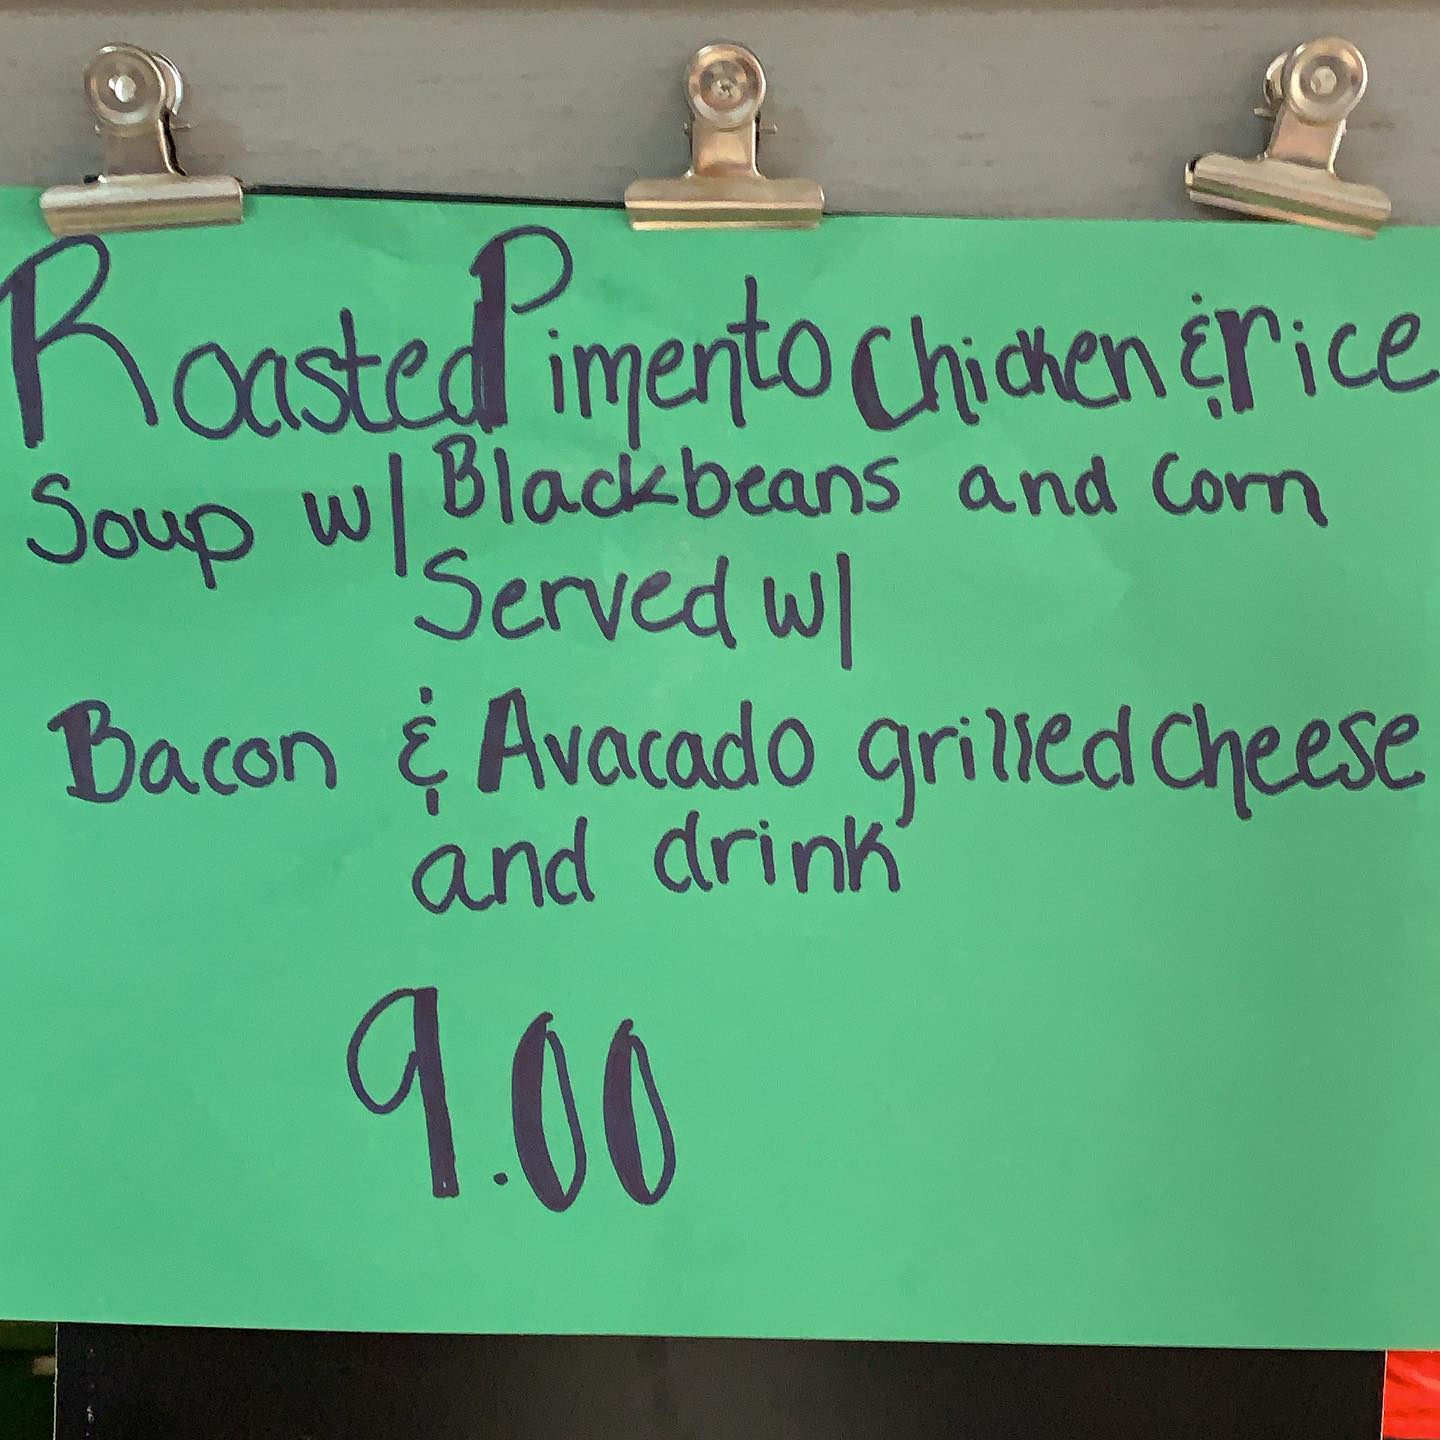 Roasted Pimento Chicken & rice
Soup w/ Blackbeans and Corn
Served w/
Bacon & Avacado grilled cheese
and drink
9.00